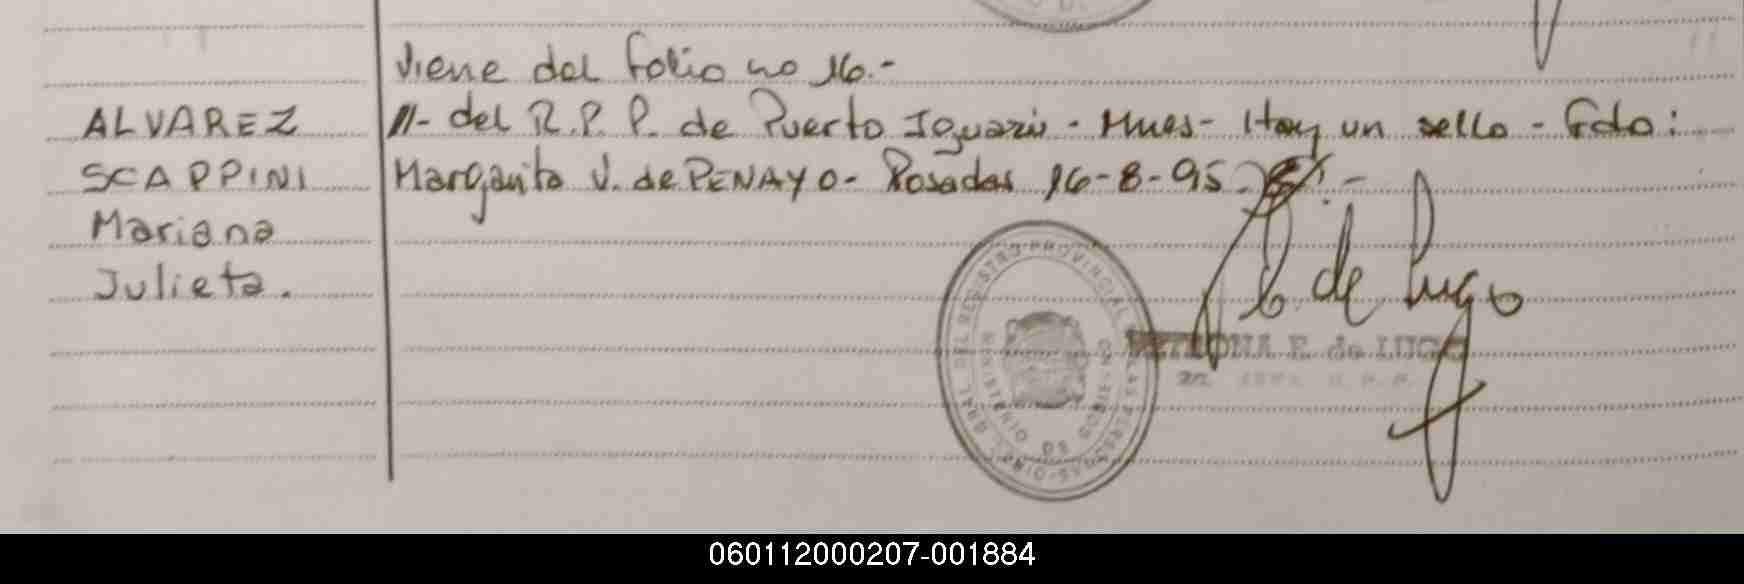 Viene del folio no 16.-
ALVAREZ
//- del R.P.P. de Puerto Iguazú - Mnes- Hay un sello - Fdo:
SCAPPINI
Margarita V. de PENAYO - Posadas 16-8-95.-
Mariana
Julieta.
de Lugo
PETRONA E. de LUGO
REGISTRO PROVINCIAL DE LAS PERSONAS
060112000207-001884